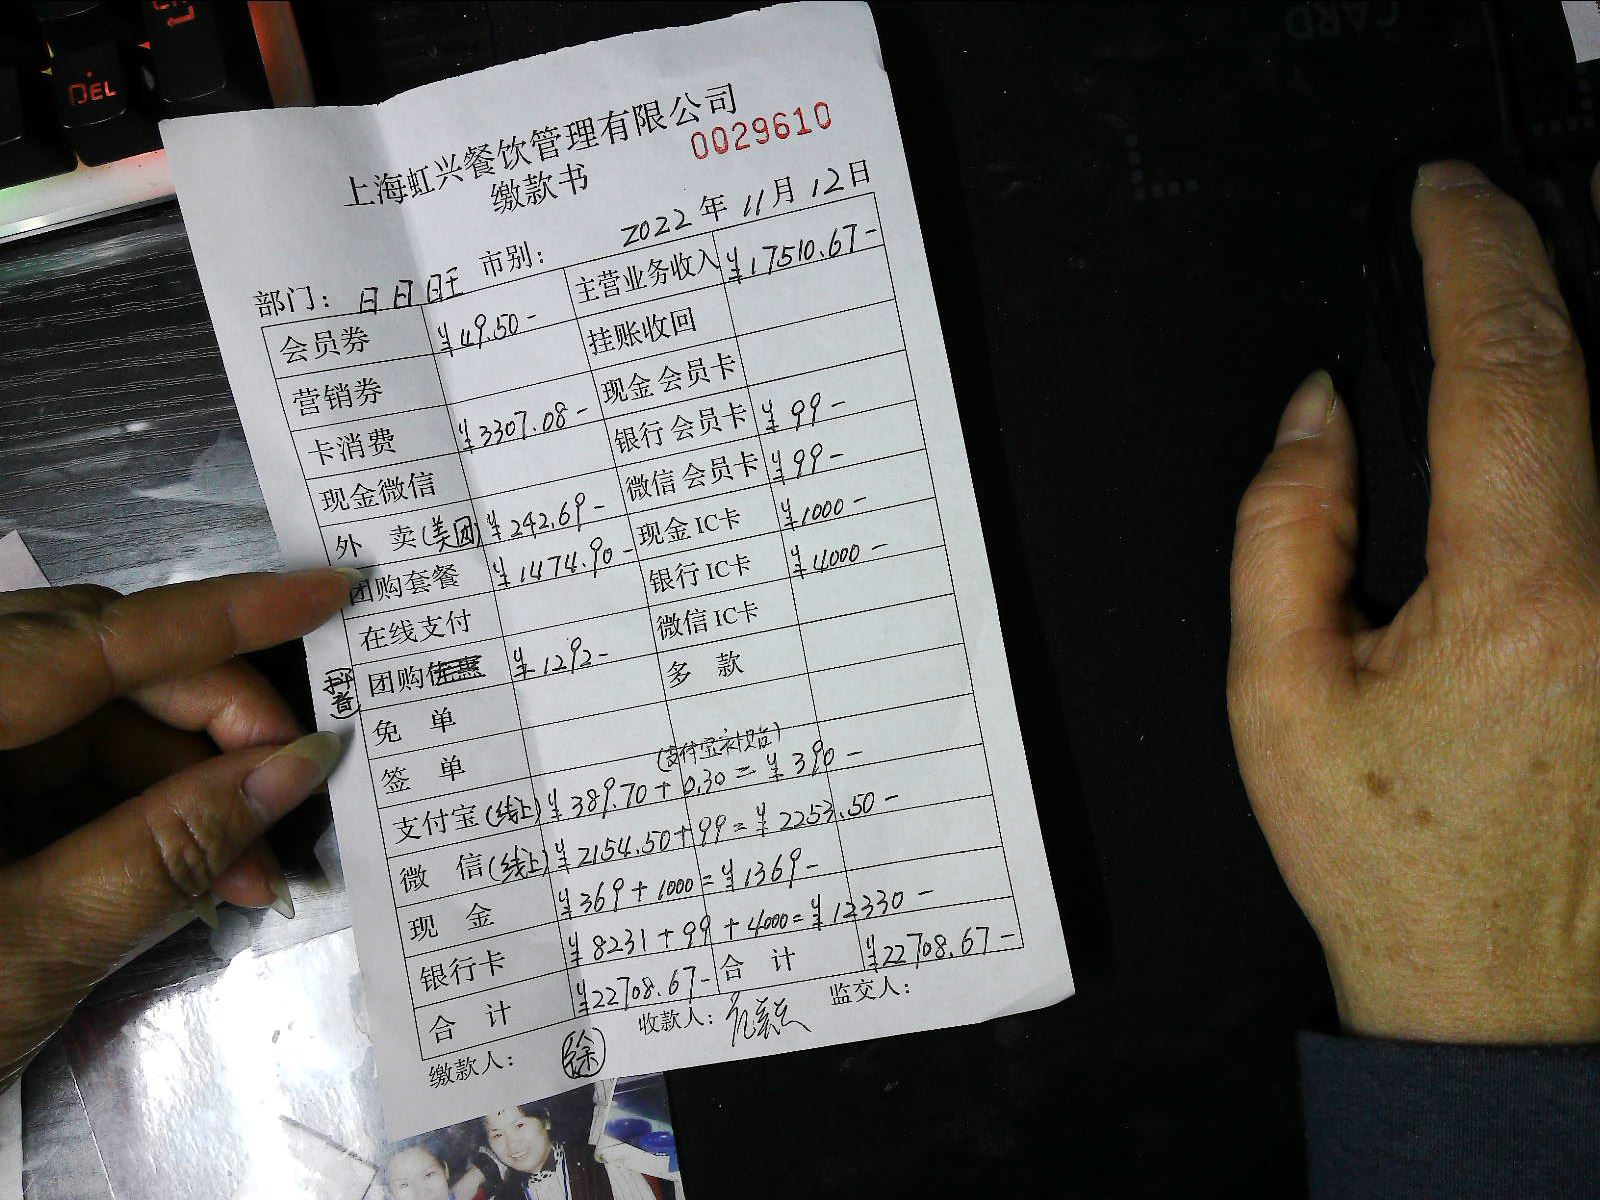 DEL
CARD
上海虹兴餐饮管理有限公司
缴款书
0029610
2022 年 11 月 12 日
部门： 日日旺 市别：
会员券 ¥49.50- 主营业务收入 ¥17510.67-
营销券 挂账收回
卡消费 ¥3307.08- 现金会员卡
现金微信 银行会员卡 ¥99-
外 卖(美团) ¥242.69- 微信会员卡 ¥99-
团购套餐 ¥1474.90- 现金IC卡 ¥1000-
在线支付 银行IC卡 ¥4000-
(抖音) 团购 ¥1292- 微信IC卡
免 单 多 款
签 单
支付宝(线上) ¥389.70+0.30=¥390-
微 信(线上) ¥2154.50+99=¥2253.50-
现 金 ¥369+1000=¥1369-
银行卡 ¥8231+99+4000=¥12330-
合 计 ¥22708.67- 合 计 ¥22708.67-
缴款人： 徐 收款人： 监交人：